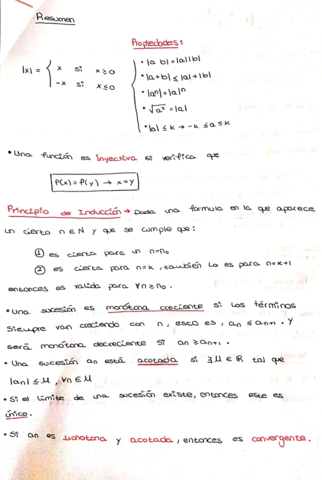 Resumen
Propiedades:
|x| = { x si x≥0
-x si x≤0
• |a b| = |a||b|
• |a+b| ≤ |a|+|b|
• |aⁿ| = |a|ⁿ
• √a² = |a|
• |a| ≤ k → -k ≤ a ≤ k
• Una función es inyectiva si verifica que
f(x) = f(y) → x=y
Principio de Inducción → Dada una formula en la que aparece
un cierto n∈N y que se cumple que:
① es cierta para un n=n₀
② es cierta para n=k, también lo es para n=k+1
entonces es valida para ∀n≥n₀.
• Una sucesión es monótona creciente si los términos
siempre van creciendo con n, esto es, aₙ ≤ aₙ₊₁. Y
será monótona decreciente si an ≥ an+1.
• Una sucesión an está acotada si ∃M∈R tal que
|an| ≤ M, ∀n∈M
• Si el límite de una sucesión existe, entonces este es
único.
• Si an es monotona y acotada, entonces es convergente.